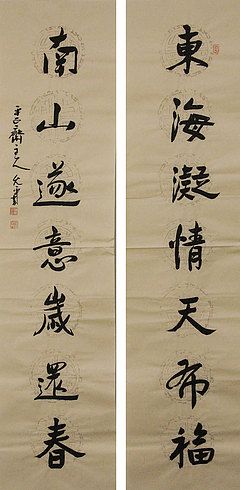 東海凝情天布福
南山遂意歲還春